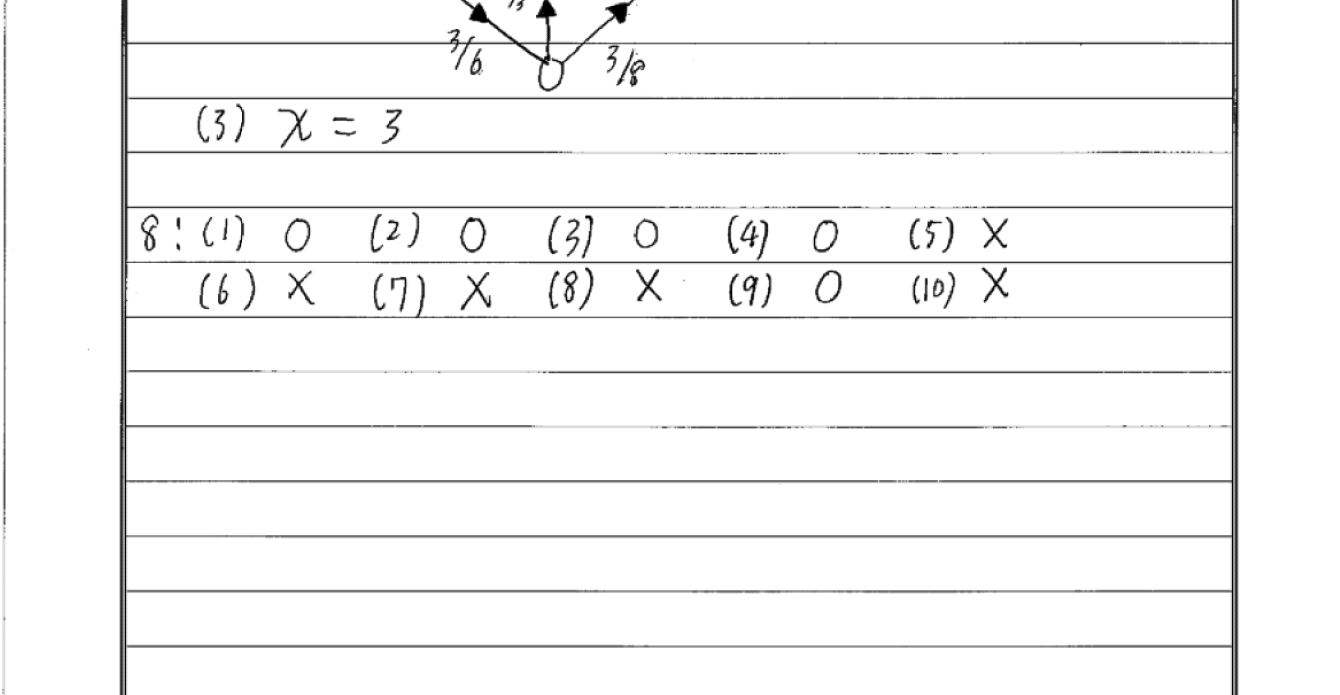 3/6 3/8
(3) x = 3
8: (1) O (2) O (3) O (4) O (5) X
(6) X (7) X (8) X (9) O (10) X